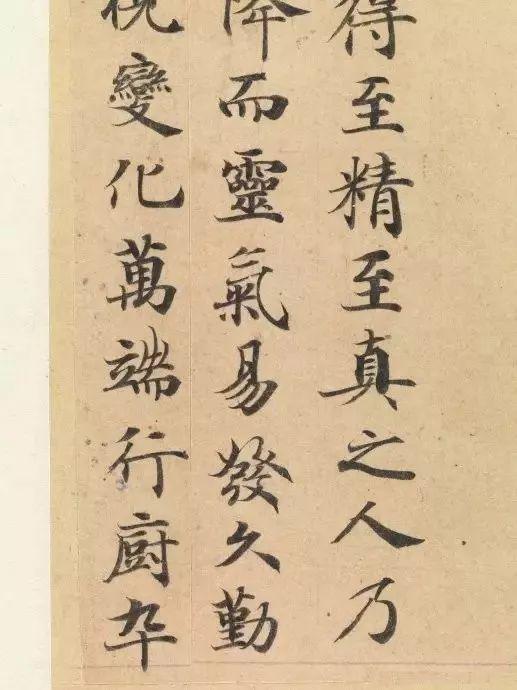 得至精至真之人乃
降而靈氣易發久勤
視變化萬端行廚卆